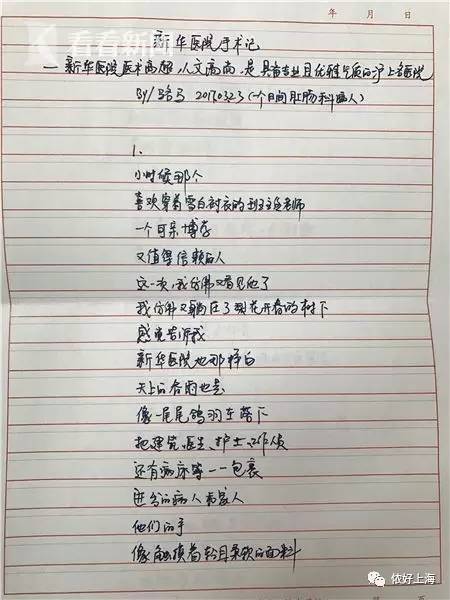 年 月 日
看看新闻
新华医院手术记
— 新华医院医术高超,人文高尚,是具备专业且优雅气质的沪上名医院
BY/路马 20170323(一个日间肛肠科病人)
1.
小时候那个
喜欢穿着雪白衬衣的班主任老师
一个可亲博学
又值得信赖的人
这一次,我仿佛又看见他了
我仿佛又躺在了梨花开春的树下
感觉告诉我
新华医院也那样白
天上的春雨也是
像一尾尾鸽羽在落下
把建筑、医生、护士、工作人员
还有病床等一一包裹
进了的病人和家人
他们的手
像触摸着轻且柔软的面料
侬好上海